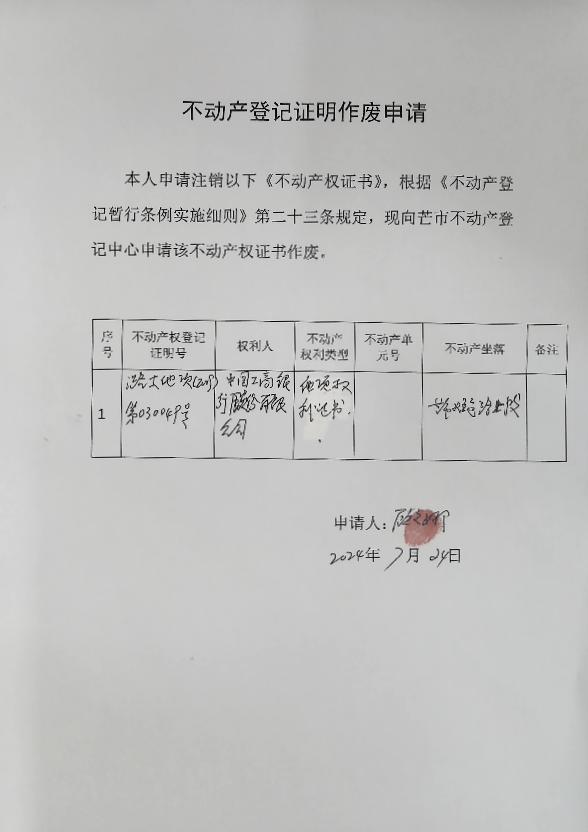 不动产登记证明作废申请
本人申请注销以下《不动产权证书》，根据《不动产登
记暂行条例实施细则》第二十三条规定，现向芒市不动产登
记中心申请该不动产权证书作废。
序号 不动产权登记证明号 权利人 不动产权利类型 不动产单元号 不动产坐落 备注
1 第030049号 中国工商银行股份有限公司 他项权利证书.
申请人：
2024年 7月 24日